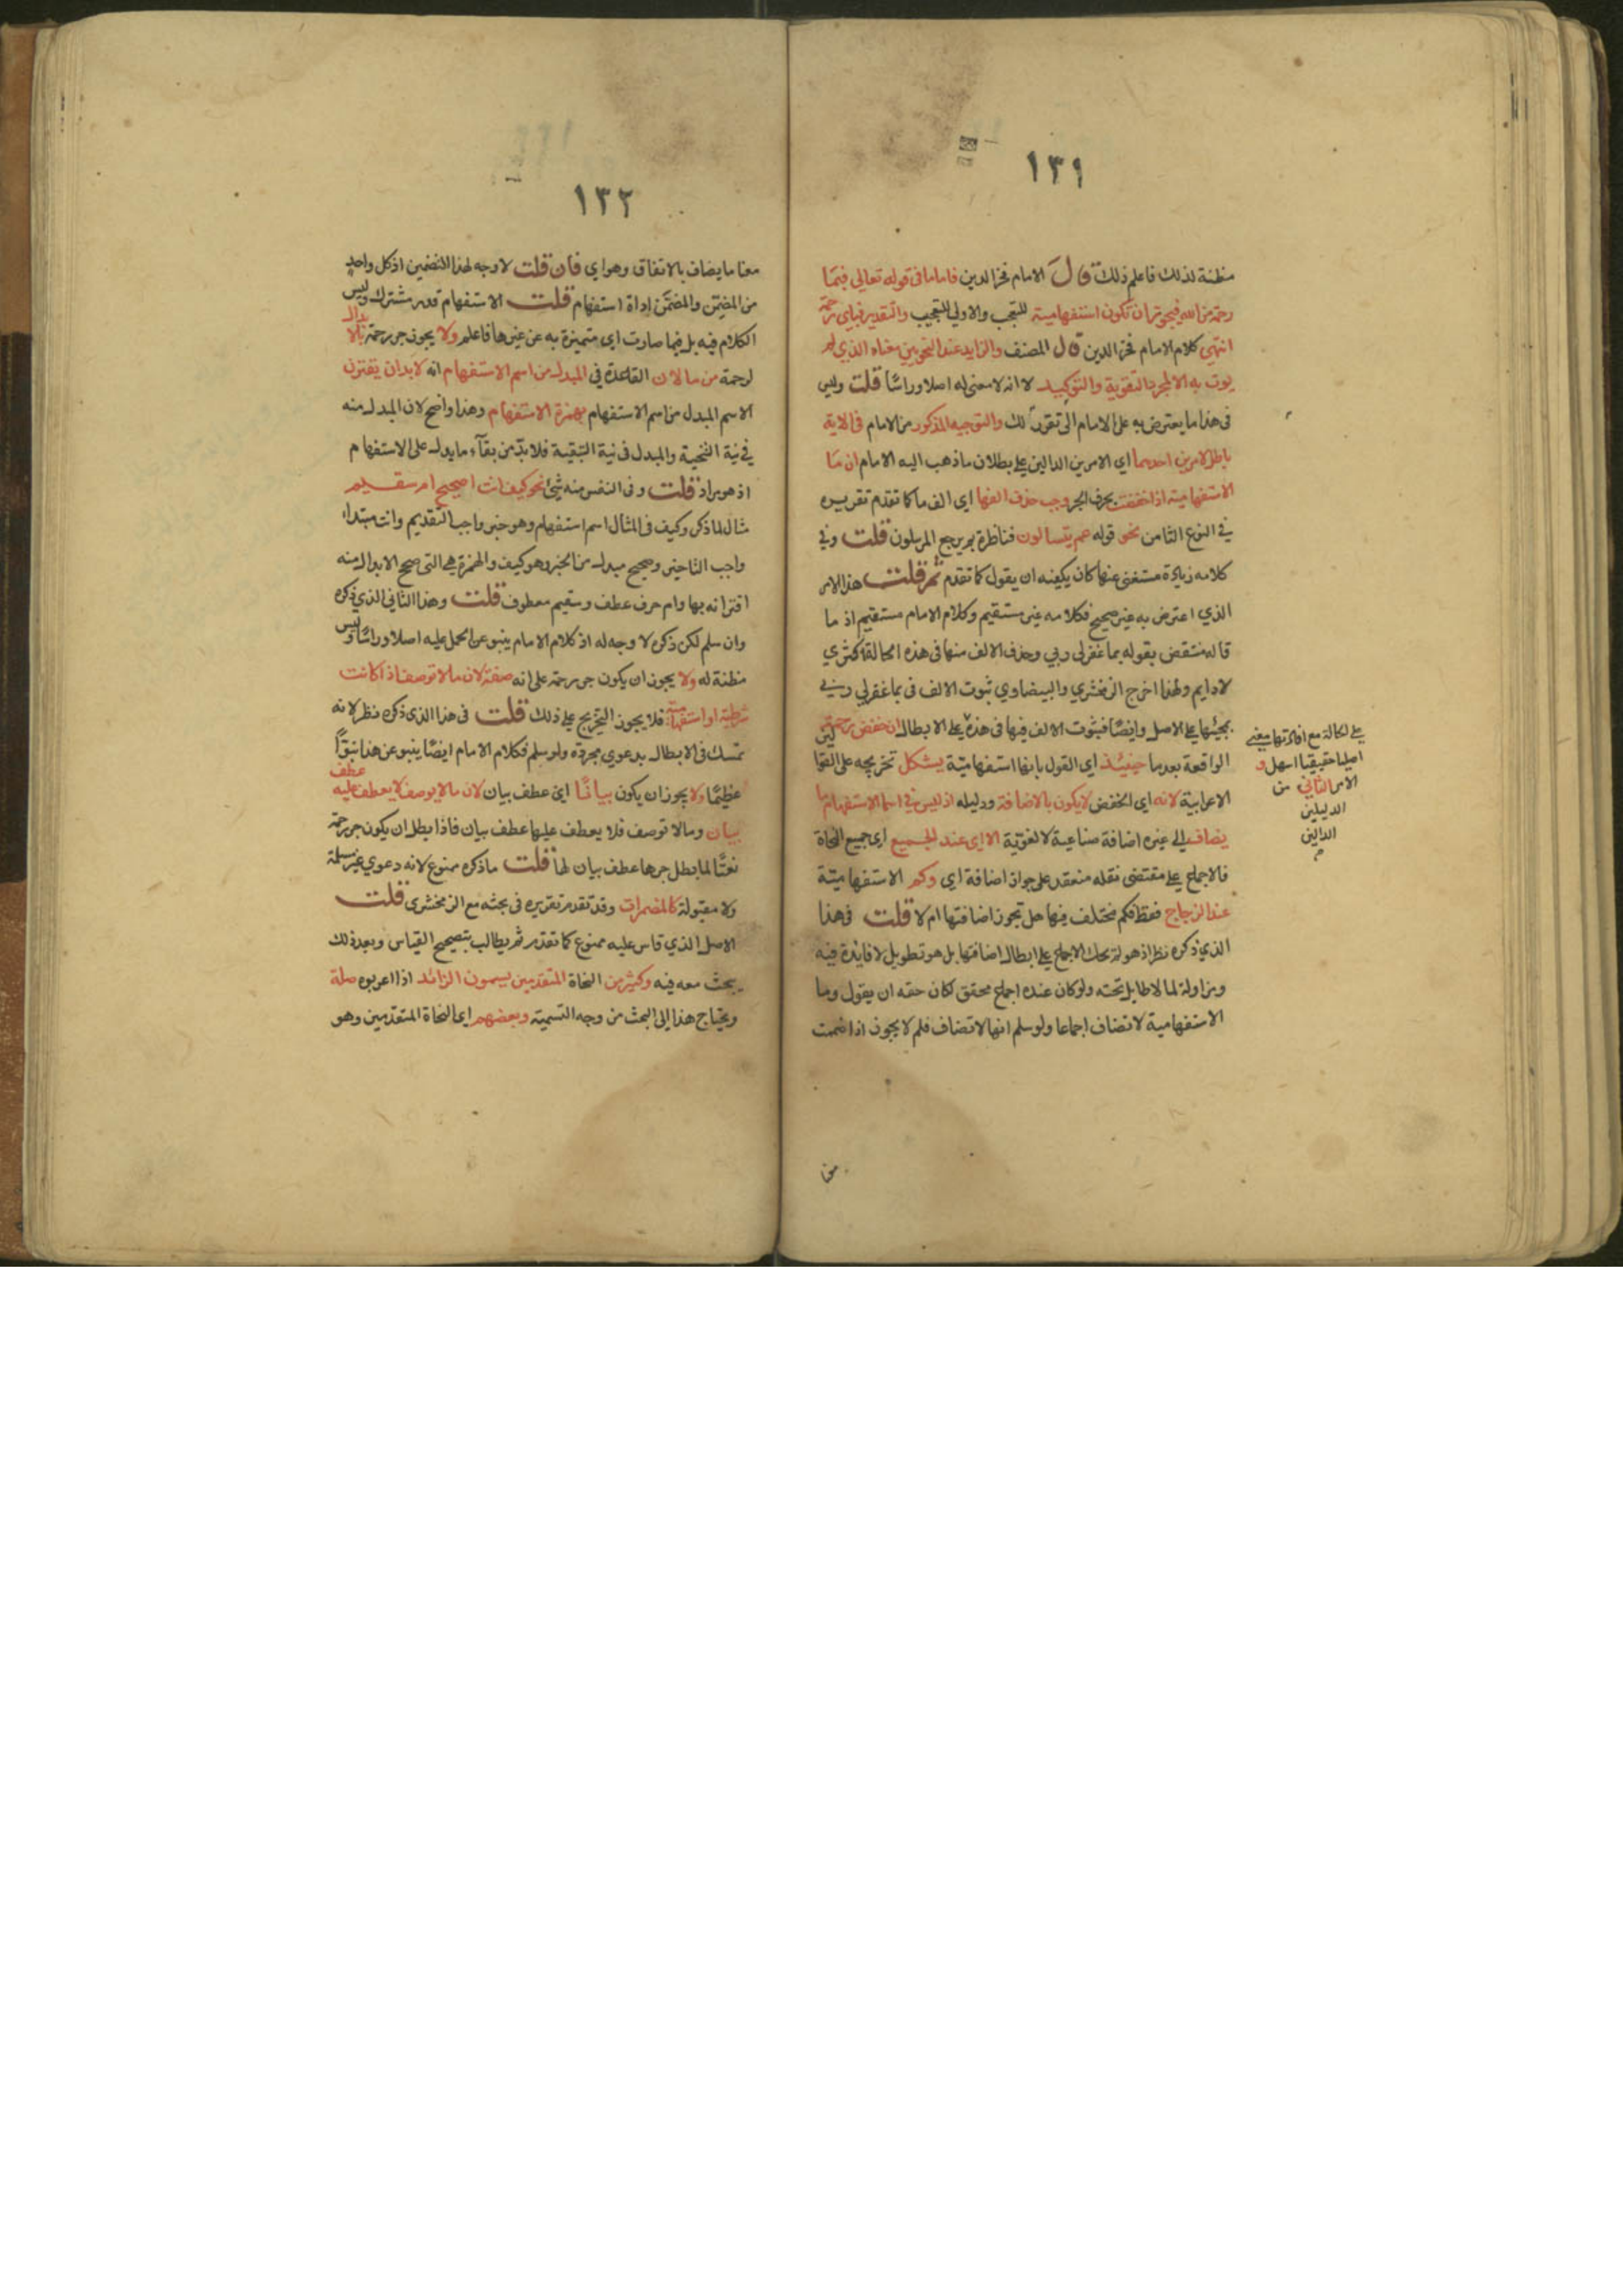 ١٣١
مظنة لذلك فاعلم ذلك قال الامام فخر الدين فاما ما في قوله تعالى فبما
رحمة من الله فيجوز ان تكون استفهامية للتعجب والاولى للتعجيب والتقدير فباي رحمة
انتهى كلام الامام فخر الدين قال المصنف والزايد عند النحويين معناه الذي لم
يوت به الا لمجرد التقوية والتوكيد لا انه لا معنى له اصلا وراسًا قلت وليس
في هذا ما يعترض به على الامام لك والتوجيه المذكور من الامام في الاية
باطل لامرين احدهما اي الامرين الدالين على بطلان ما ذهب اليه الامام ان ما
الاستفهامية اذا خفضت بحرف الجر وجب حذف الفها اي الف ما كما تقدم تقريره
في النوع الثامن نحو قوله عم يتسالون فناظرة بم يرجع المرسلون قلت وفي
كلامه زيادة مستغنى عنها كان يكفيه ان يقول كما تقدم ثم قلت هذا الامر
الذي اعترض به غير صحيح فكلامه غير مستقيم وكلام الامام مستقيم اذ ما
قاله منتقض بقوله بما غفر لي ربي وحذف الالف منها في هذه الحالة اكثري
لا دايم ولهذا اخرج الزمخشري والبيضاوي ثبوت الالف في بما غفر لي ربي
بمجيئها على الاصل وايضًا فثبوت الالف فيها في هذه على الابطال ان خفض رحمة
الواقعة بعد ما حينئذ اي القول بانها استفهامية يشكل تخريجه على القوا
الاعرابية لانه اي الخفض لا يكون بالاضافة ودليله اذ ليس في اسما الاستفهام ما
يضاف الى غيره اضافة صناعية لا لغوية الا اي عند الجميع اي جميع النحاة
فالاجماع على مقتضى نقله منعقد على جواز اضافة اي وكم الاستفهامية
عند الزجاج فقط فكم مختلف فيها هل تجوز اضافتها ام لا قلت في هذا
الذي ذكره نظر اذ هو لم يحك الاجماع على ابطال اضافتها بل هو تطويل لا فايدة فيه
ومزاولة لما لا طايل تحته ولو كان عنده اجماع محقق لكان حقه ان يقول وما
الاستفهامية لا تضاف اجماعا ولو سلم انها لا تضاف فلم لا يجوز اذا ضمنت
على الحالة مع افادتها معنى
اصليا حقيقيا اسهل و
الامر الثاني من
الدليلين
الدالين
م
معنا
١٣٢
معنا ما يضاف بالاتفاق وهو اي فان قلت لا وجه لهذا التضمين اذ كل واحد
من المضمن والمضمن اداة استفهام قلت الاستفهام قدر مشترك وليس
الكلام فيه بل فيما صارت اي متميزة به عن غيرها فاعلم ولا يجوز جر رحمة بالابدال
لرحمة من ما لان القاعدة في المبدل من اسم الاستفهام انه لا بد ان يقترن
الاسم المبدل من اسم الاستفهام بهمزة الاستفهام وهذا واضح لان المبدل منه
في نية التنحية والمبدل في نية التبقية فلا بد من بقاء ما يدل على الاستفهام
اذ هو مراد قلت وفي النفس منه شيئ نحو كيف انت اصحيح ام سقيم
مثال لما ذكر وكيف في المثال اسم استفهام وهو خبر واجب التقديم وانت مبتدا
واجب التاخير وصحيح مبدل من الخبر وهو كيف والهمزة هي التي صحح الابدال منه
اقترانه بها وام حرف عطف وسقيم معطوف قلت وهذا الثاني الذي ذكره
وان سلم لكن ذكره لا وجه له اذ كلام الامام ينبو عن الحمل عليه اصلا وراسًا وليس
مظنة له ولا يجوز ان يكون جر رحمة على انه صفة لان ما لا توصف اذا كانت
شرطية او استفهامية فلا يجوز التخريج على ذلك قلت في هذا الذي ذكره نظر لانه
تمسك في الابطال بدعوى مجردة ولو سلم فكلام الامام ايضًا ينبو عن هذا نبوًّا
عظيمًا ولا يجوز ان يكون بيانًا اي عطف بيان لان ما لا يوصف لا يعطف عليه عطف
بيان وما لا توصف فلا يعطف عليها عطف بيان فاذا بطل ان يكون جر رحمة
نعتًا لما بطل جرها عطف بيان لها قلت ما ذكره ممنوع لانه دعوى غير مسلمة
ولا مقبولة كالمضمرات وقد تقدم تقريره في بحثه مع الزمخشري قلت
الاصل الذي قاس عليه ممنوع كما تقدم ثم يطالب بتصحيح القياس وبعد ذلك
يبحث معه فيه وكثير من النحاة المتقدمين يسمون الزائد اذا اعربوه صلة
ويحتاج هذا الى البحث من وجه التسمية وبعضهم اي النحاة المتقدمين وهو